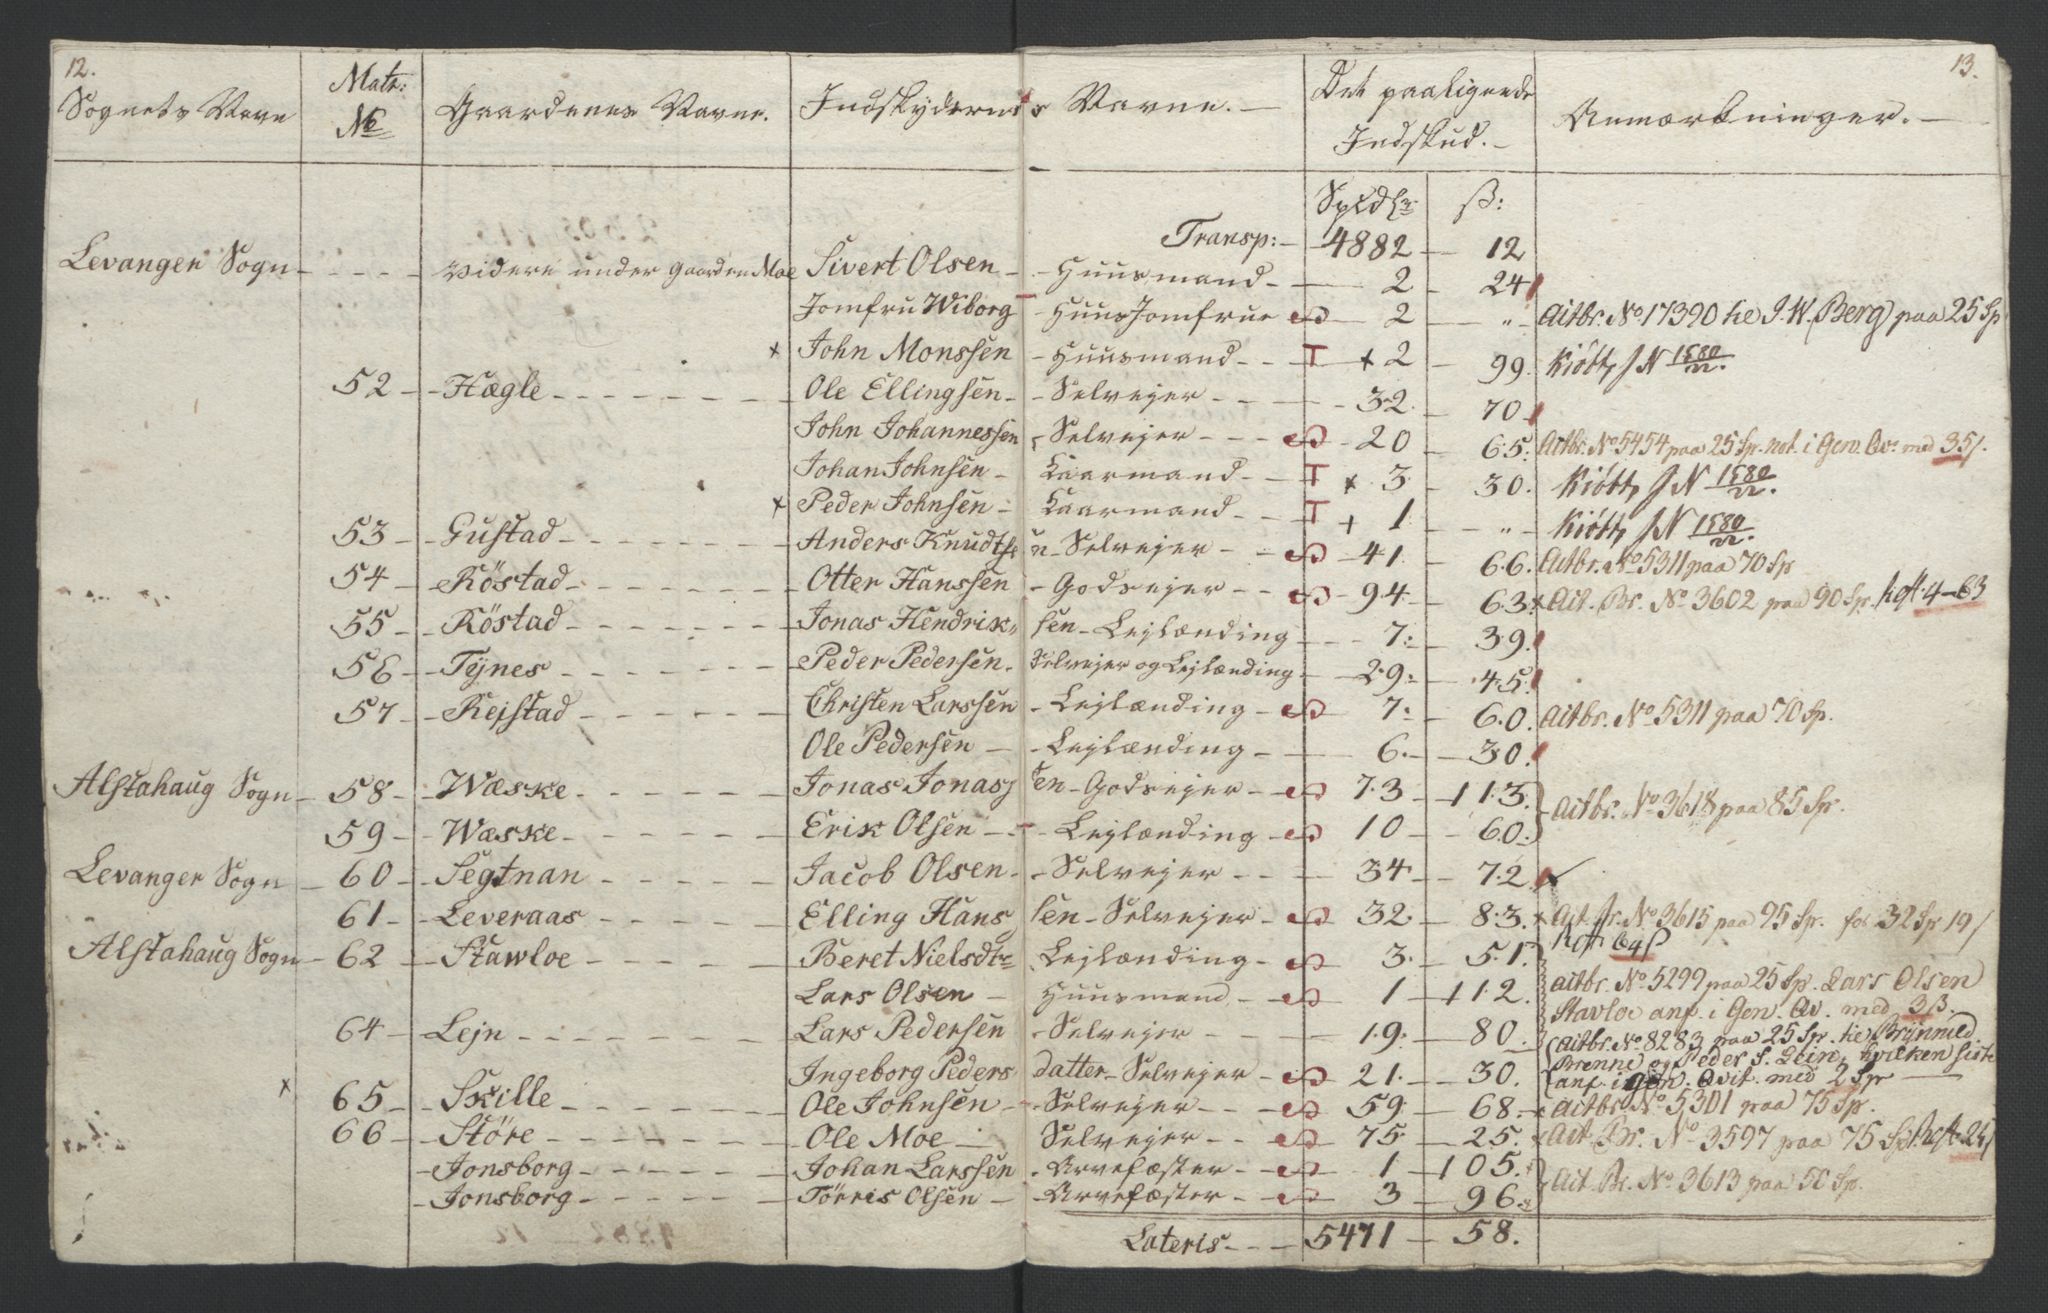 12.
13.
Sognets Navn Matr: No Gaardenes Navne. Indskydernes Navne. Det paaligende Indskud. Anmærkninger.
Spcdlr ß:
Transp: 4882 12
Levanger Sogn videre under Gaarden Moe Sivert Olsen Huusmand 2 24
Jomfru Wiborg Huusjomfrue 2 " Qitbr. No 17390 he J. W. Berg paa 25 Sp
x John Monssen Huusmand T x 2 99. JN 1580
52 Hægle Ole Ellingsen Selvejer 32. 70
John Johannessen Selvejer 20 65. Qitbr. No 5454 paa 25 Sp. not. i Gen. Qv. med 35/.
Johan Johnsen Kaarmand T x 3. 30. JN 1580
x Peder Johnsen Kaarmand T + 1 " JN 1580
53 Gustad Anders Knudtsen Selvejer 41. 66. Qitbr. No 5311 paa 70 Sp
54 Röstad Otter Hanssen Godsejer 94. 63 x Qit. Br. No 3602 paa 90 Sp. Rest 4-63
55 Röstad Jonas Hendriksen Lejlænding 7. 39.
56 Tÿnes Peder Pedersen Selvejer og Lejlænding 29. 45.
57 Rejstad Christen Larssen Lejlænding 7. 60. Qitbr. No 5311 paa 70 Sp.
Ole Pedersen Lejlænding 6. 30.
Alstahaug Sogn 58 Wæske Jonas Jonassen Godsejer 73 113. Qitbr. No 3618 paa 85 Sp.
59 Wæske Erik Olsen Lejlænding 10 60.
Levanger Sogn 60 Segtnan Jacob Olsen Selvejer 34 72
61 Leveraas Elling Hanssen Selvejer 32. 83. x Qit. Br. No 3615 paa 95 Sp. for 32 Sp 19/
Alstahaug Sogn 62 Stawloe Beret Nielsdtr Lejlænding 3. 51. Rest 64ß
Lars Olsen Huusmand 1 112. Qitbr. No 5299 paa 25 Sp. Lars Olsen
Stavloe anf. i Gen. Qv. med 3ß.
64 Lejn Lars Pedersen Selvejer 19. 80. Qitbr. No 8283 paa 25 Sp. he Brynnild
Ingeborg Pedersdatter Selvejer 21. 30. Brenne og Peder S. Lein, hvilken siste
anf. i Gen. Qvit. med 2 Sp
x 65 Skille Ole Johnsen Selvejer 59 68. Qitbr. No 5301 paa 75 Sp.
66 Störe Ole Moe Selvejer 75 25. x Qit. Br. No 3597 paa 75 Sp Rest 25/
Jonsborg Johan Larssen Arvefæster 1 105. Qit. Br. No 3613 paa 50 Sp.
Jonsborg Törris Olsen Arvefæster 3 96.
Lateris 5471 58.